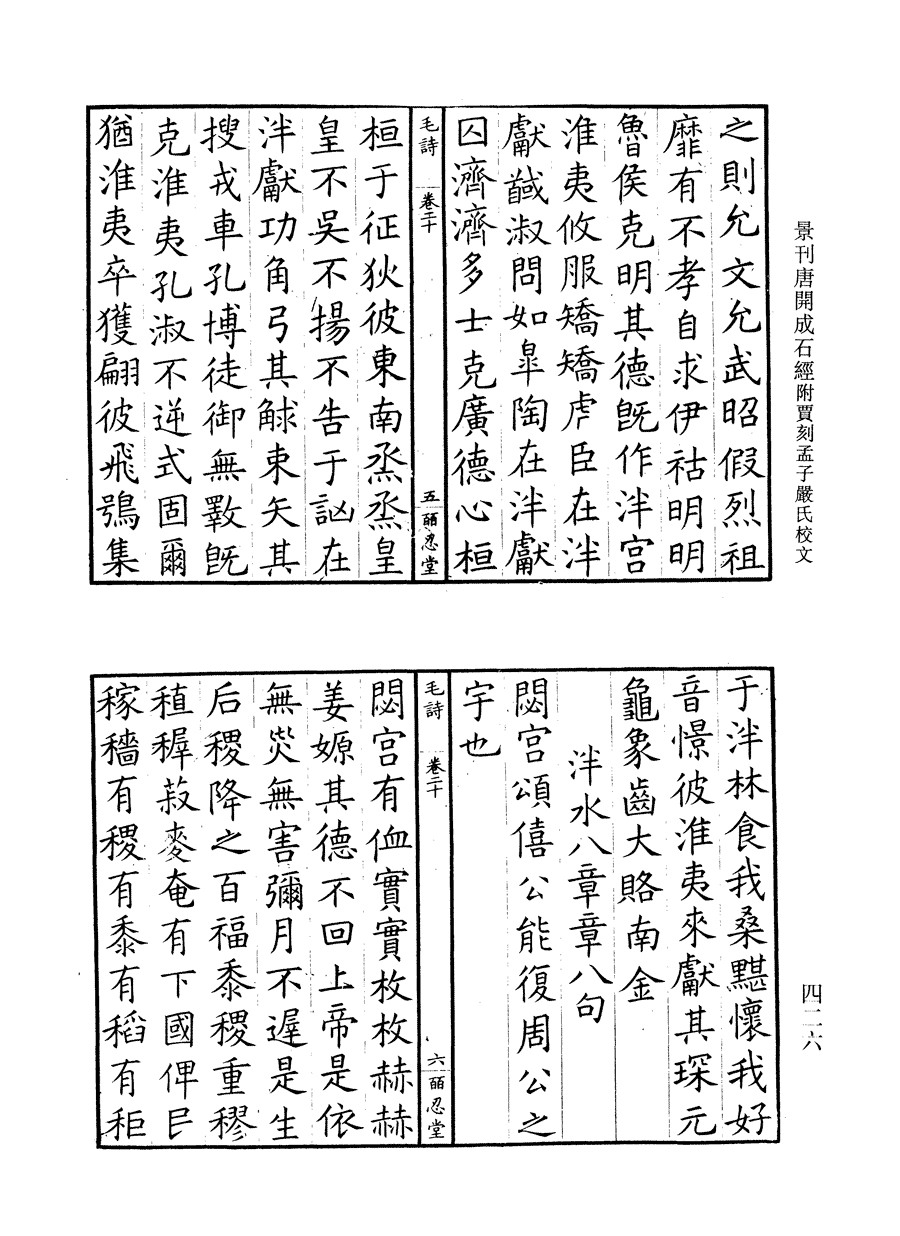 景刊唐開成石經附賈刻孟子嚴氏校文
四二六
之則允文允武昭假烈祖
靡有不孝自求伊祜明明
魯侯克明其德旣作泮宮
淮夷攸服矯矯虎臣在泮
獻馘淑問如皐陶在泮獻
囚濟濟多士克廣德心桓
毛詩 卷二十 五 皕忍堂
桓于征狄彼東南烝烝皇
皇不吳不揚不告于訩在
泮獻功角弓其觩束矢其
搜戎車孔博徒御無斁旣
克淮夷孔淑不逆式固爾
猶淮夷卒獲翩彼飛鴞集
于泮林食我桑黮懷我好
音憬彼淮夷來獻其琛元
龜象齒大賂南金
泮水八章章八句
閟宮頌僖公能復周公之
宇也
毛詩 卷二十 六 皕忍堂
閟宮有侐實實枚枚赫赫
姜嫄其德不回上帝是依
無災無害彌月不遲是生
后稷降之百福黍稷重穋
稙稺菽麥奄有下國俾民
稼穡有稷有黍有稻有秬